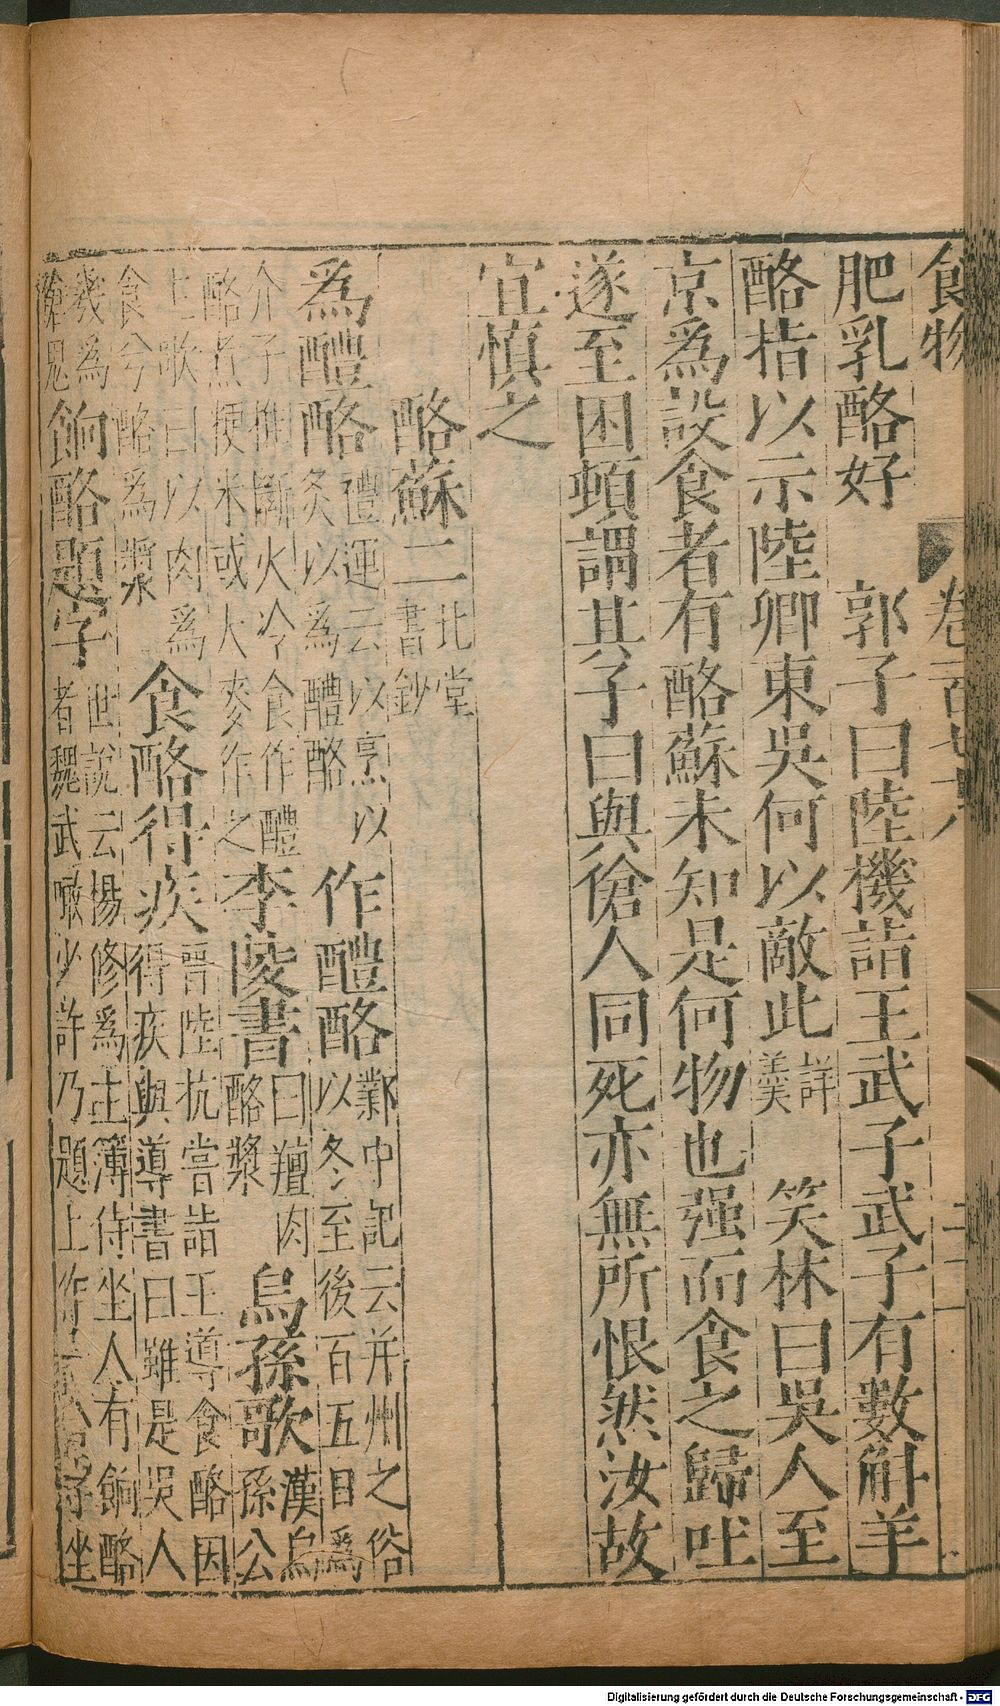 食物 卷
肥乳酪好 郭子曰陸機詣王武子武子有數斛羊
酪指以示陸卿東吳何以敵此詳羹 笑林曰吳人至
京爲設食者有酪蘇未知是何物也强而食之歸吐
遂至困頓謂其子曰與傖人同死亦無所恨然汝故
宜慎之
酪蘇二 北堂書鈔
爲醴酪 禮運云以烹以炙以爲醴酪 作醴酪 鄴中記云并州之俗以冬至後百五日爲
介子推斷火冷食作醴酪煮粳米或大麥作之 李陵書 曰羶肉酪漿 烏孫歌 漢烏孫公
主歌曰以肉爲食兮酪爲漿 食酪得疾 晉陸抗嘗詣王導食酪因得疾與導書曰雖是吳人
幾爲傖鬼 餉酪題字 世說云楊修爲主簿侍坐人有餉酪者魏武噉少許乃題上作 坐
Digitalisierung gefördert durch die Deutsche Forschungsgemeinschaft - DFG